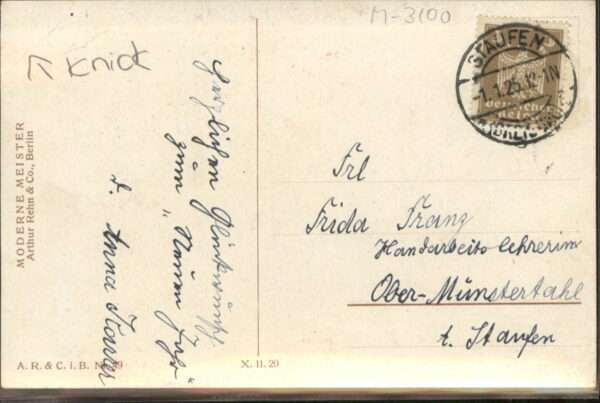 M-3100
↖ Knick
MODERNE MEISTER
Arthur Rehn & Co., Berlin
Herzlichen Glückwunsch
zum „Neuen Jahr“
d. Anna
STAUFEN
1.1.25.12-1N
Deutsches
Reich
Frl
Frida Franz
Handarbeitslehrerin
Ober-Münstertahl
b. Staufen
A. R. & C. i. B. No.
X. 11. 20